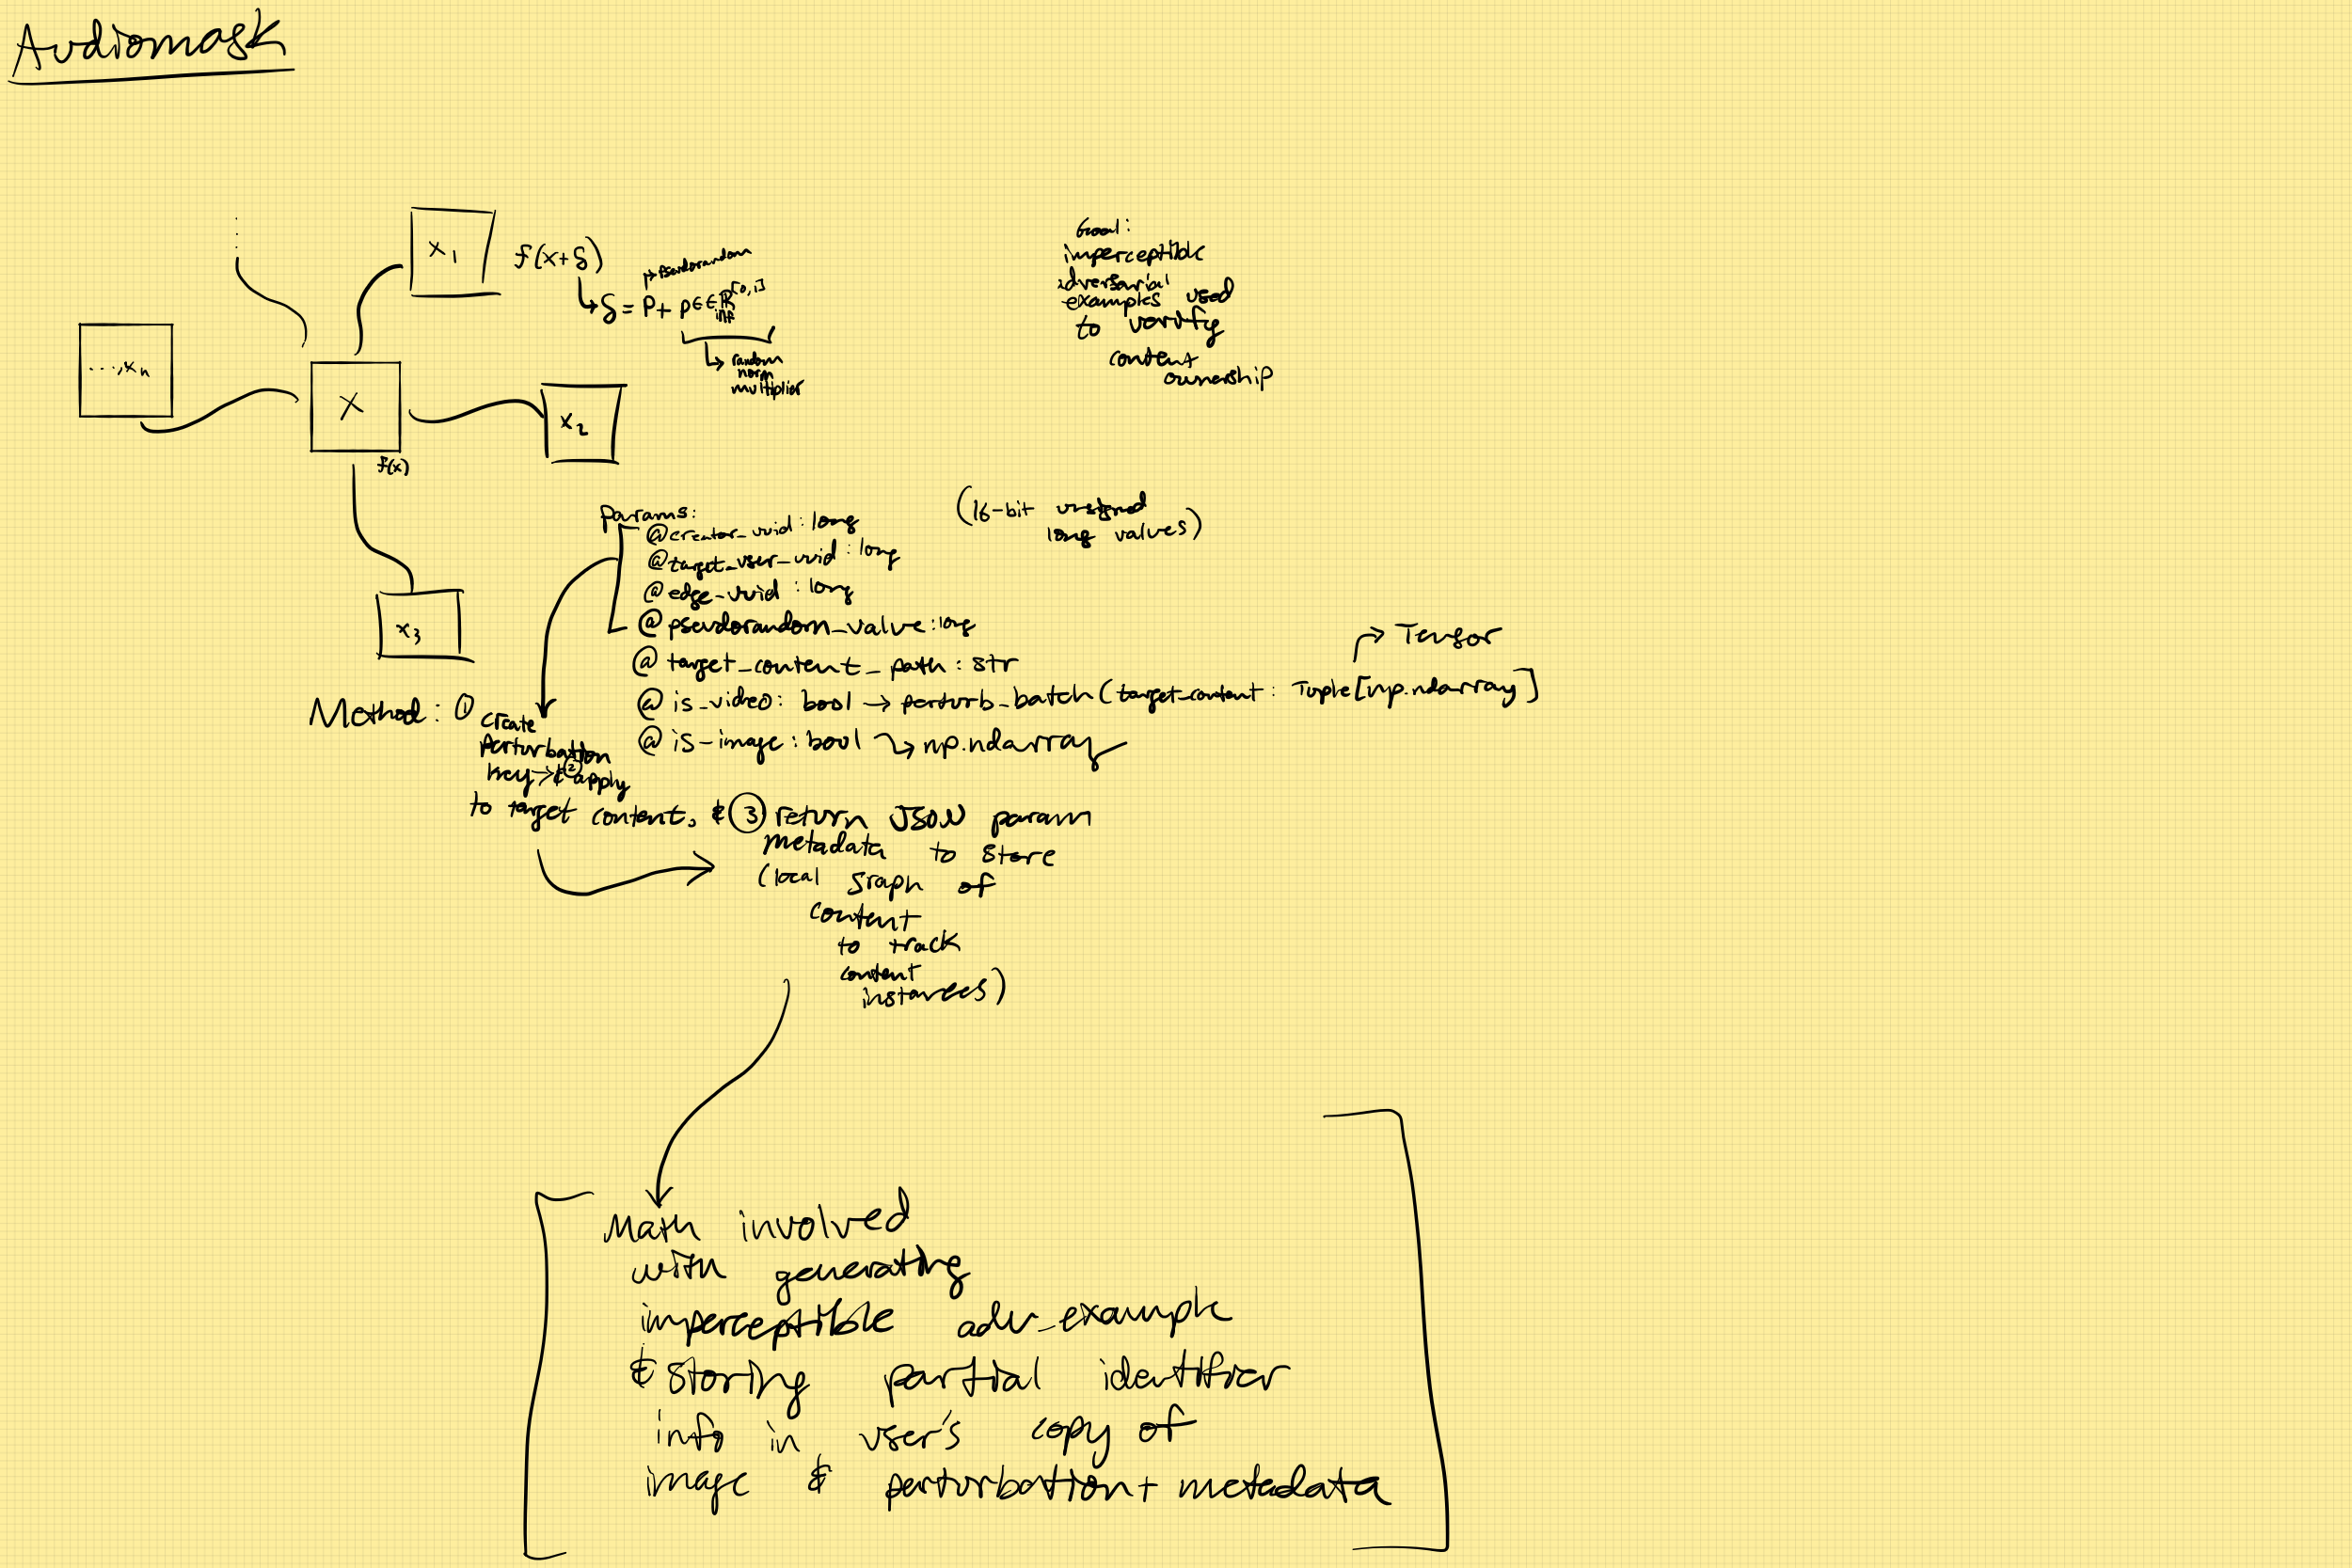 Audiomask
x₁
f(x+δ)
↳ δ = P + p ∈ ∈ ℝ
[0,1]
inf
↳ pseudorandom
↳ random
norm
multiplier
Goal:
imperceptible
adversarial
examples used
to verify
content
ownership
...,xₙ
X
f(x)
x₂
x₃
params:
@creator_uuid: long
@target_user_uuid: long
@edge_uuid: long
@pseudorandom_value: long
@target_content_path: str
@is_video: bool → perturb_batch(target_content: Tuple[np.ndarray]
→ Tensor
@is_image: bool → np.ndarray
(16-bit unsigned
long values)
Method: ①
create
perturbation
key → & ② apply
to target content, & ③ return JSON param
metadata to store
(local graph of
content
to track
content
instances)
Math involved
with generating
imperceptible adv_example
& storing partial identifier
info in user's copy of
image & perturbation + metadata